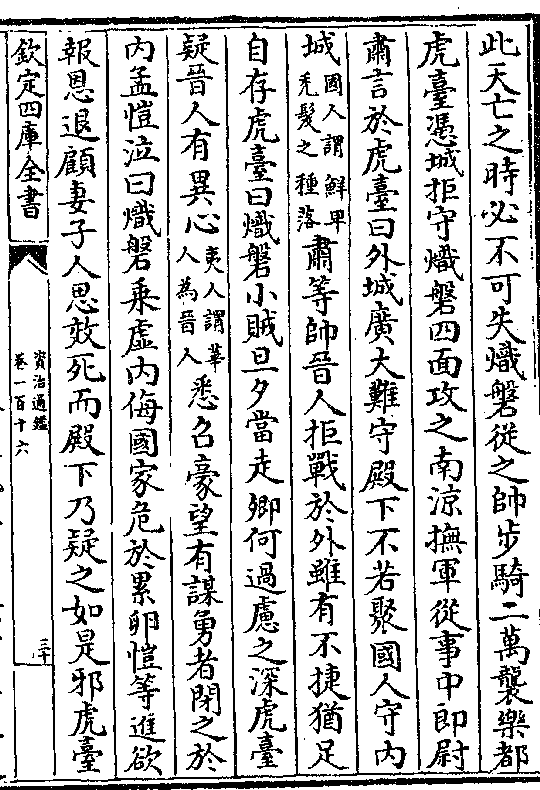 此天亡之時必不可失熾磐從之帥步騎二萬襲樂都
虎臺憑城拒守熾磐四面攻之南涼撫軍從事中郎尉
肅言於虎臺曰外城廣大難守殿下不若聚國人守内
城國人謂鮮卑禿髮之種落肅等帥晉人拒戰於外雖有不捷猶足
自存虎臺曰熾磐小賊旦夕當走卿何過慮之深虎臺
疑晉人有異心夷人謂華人為晉人悉召豪望有謀勇者閉之於
内孟愷泣曰熾磐乘虛内侮國家危於累卵愷等進欲
報恩退顧妻子人思效死而殿下乃疑之如是邪虎臺
欽定四庫全書
資治通鑑
卷一百十六
三十